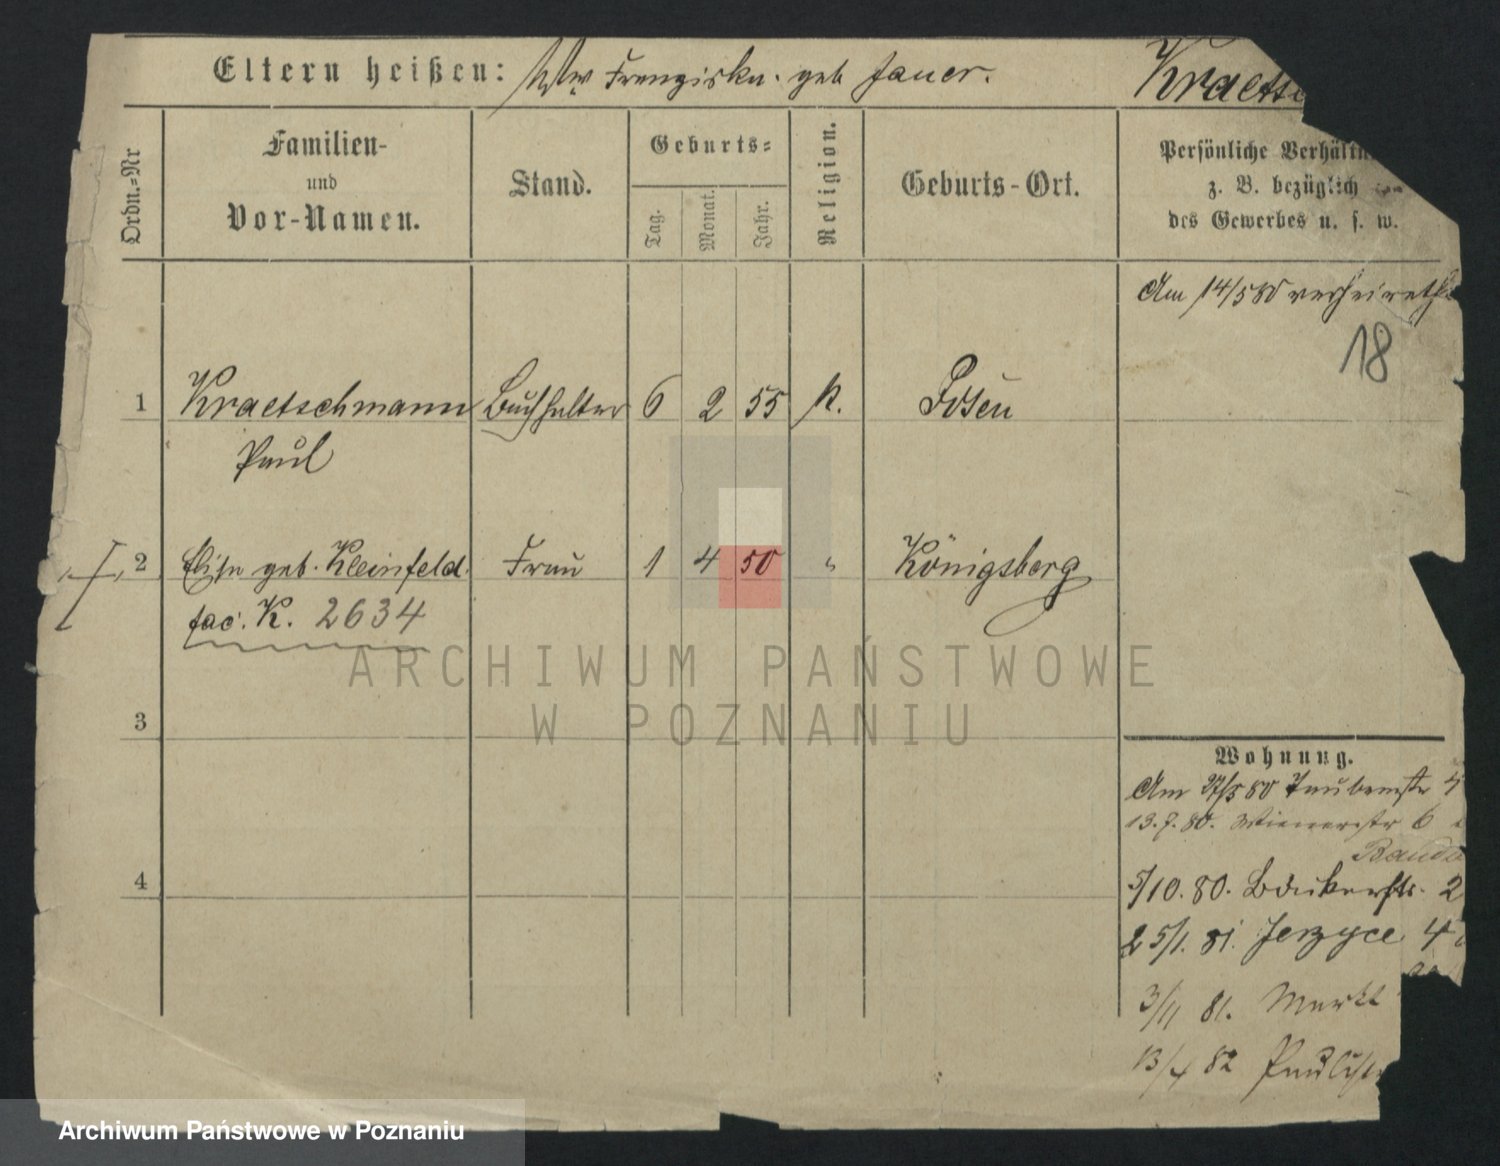 Eltern heißen: Ww Franziska. geb Jauer.
Kraetsc
Ordn.=Nr
Familien-
und
Vor-Namen.
Stand.
Geburts=
Tag.
Monat.
Jahr.
Religion.
Geburts-Ort.
Persönliche Verhältn
z. B. bezüglich
des Gewerbes u. s. w.
Am 14/5 80 verheirath
18
1 Kraetschmann Buchhalter 6 2 55 k. Posen
Paul
2 Elise geb. Kleinfeld. Frau 1 4 50 " Königsberg
fac. K. 2634
ARCHIWUM PAŃSTWOWE
W POZNANIU
3
Wohnung.
Am 27/5 80 Taubenstr 4
13.7.80. Wienerstr 6
4
5/10. 80. Bäckerstr. 2
25/1. 81. Jerzyce 4
3/11 81. Markt
13/4 82 Paulist
Archiwum Państwowe w Poznaniu